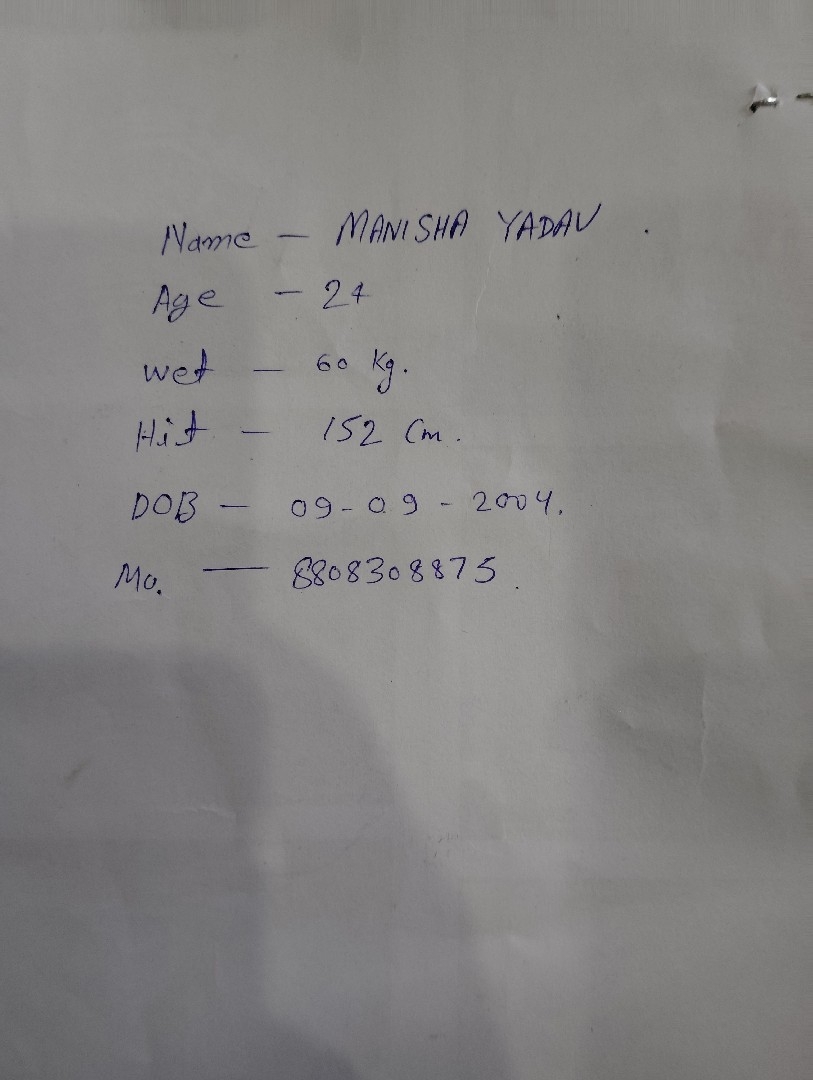 Name - MANISHA YADAV .
Age - 24
Wet - 60 Kg.
Hit - 152 Cm.
DOB - 09-09-2004.
Mo. - 8808308875.